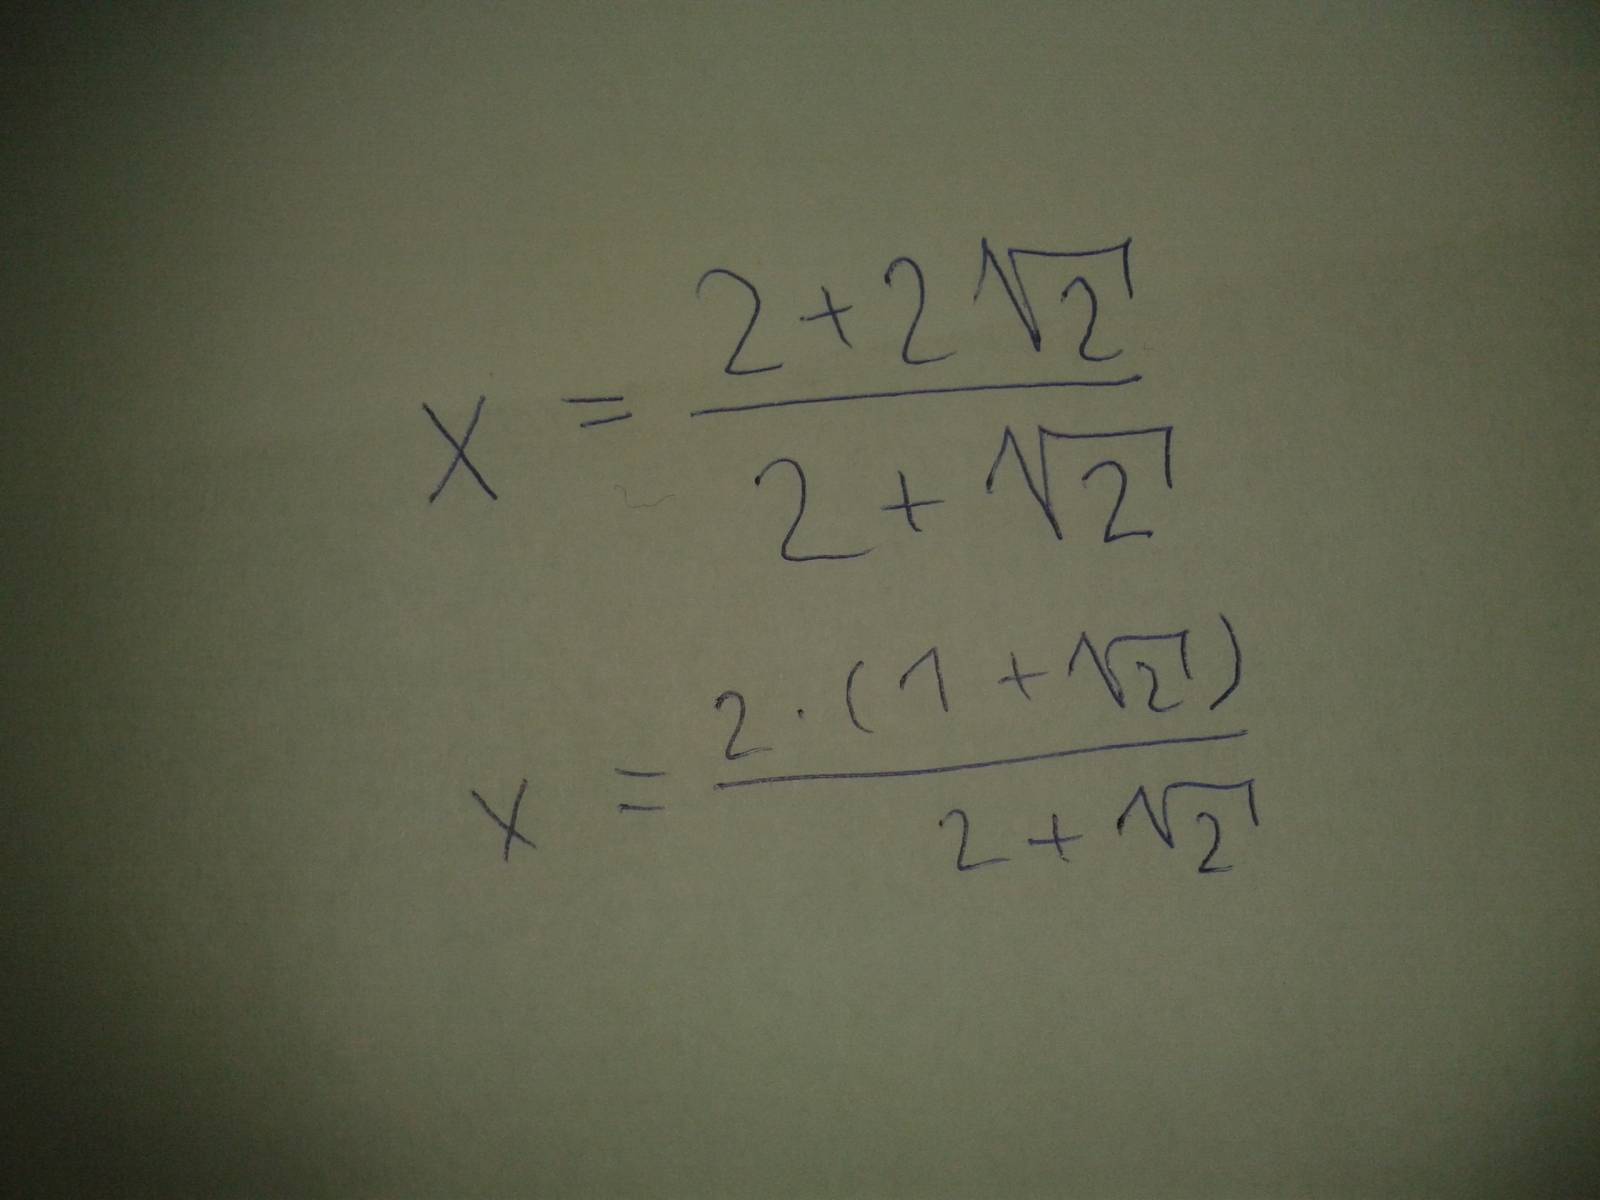 x = (2+2√2)/(2+√2)
x = (2·(1+√2))/(2+√2)